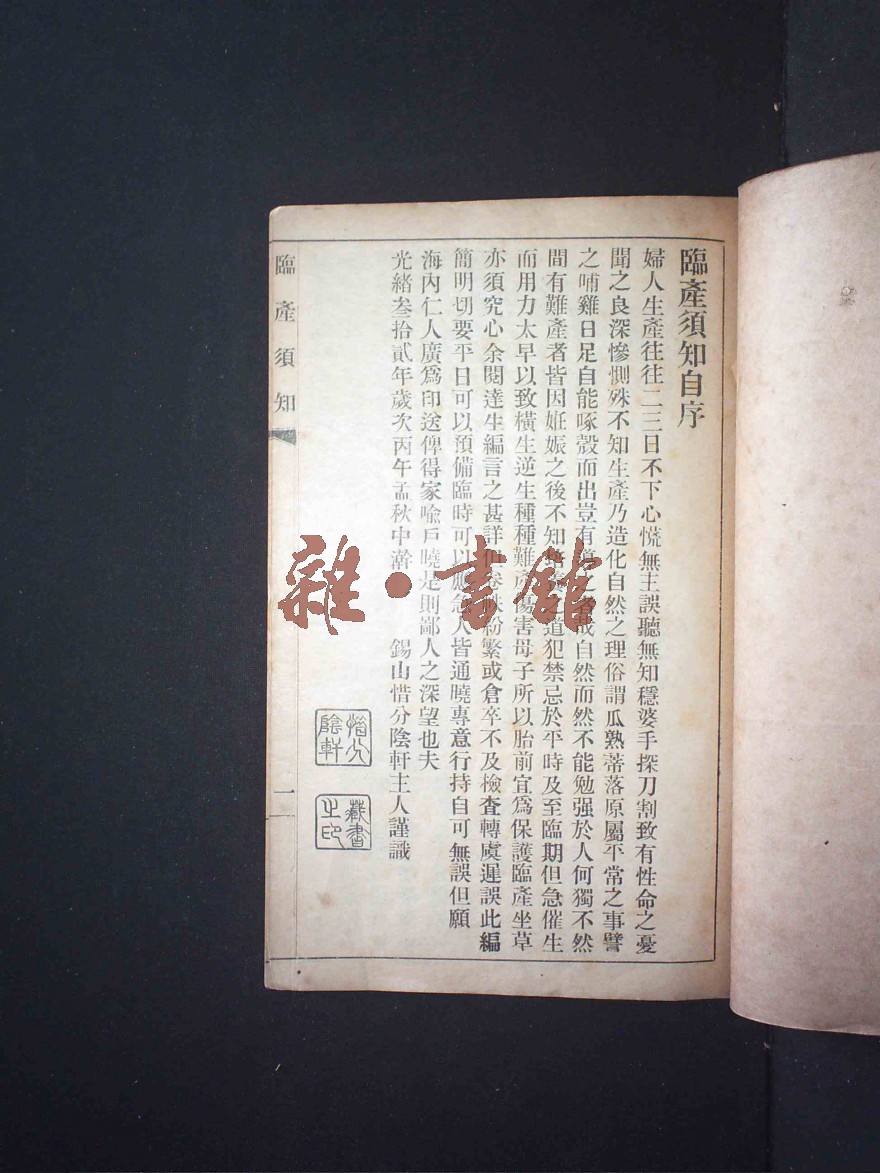 臨產須知自序
婦人生產往往二三日不下心慌無主誤聽無知穩婆手探刀割致有性命之憂
聞之良深慘惻殊不知生產乃造化自然之理俗謂瓜熟蒂落原屬平常之事譬
之哺雞日足自能啄殼而出豈有之哉自然而然不能勉强於人何獨不然
間有難產者皆因姙娠之後不知之道犯禁忌於平時及至臨期但急催生
而用力太早以致橫生逆生種種難產傷害母子所以胎前宜爲保護臨產坐草
亦須究心余閱達生編言之甚詳但卷帙紛繁或倉卒不及檢查轉虞遲誤此編
簡明切要平日可以預備臨時可以應急人皆通曉專意行持自可無誤但願
海內仁人廣爲印送俾得家喻戶曉是則鄙人之深望也夫
光緒叁拾貳年歲次丙午孟秋中澣 錫山惜分陰軒主人謹識
惜分陰軒
藏書之印
臨產須知
一
雜·書館